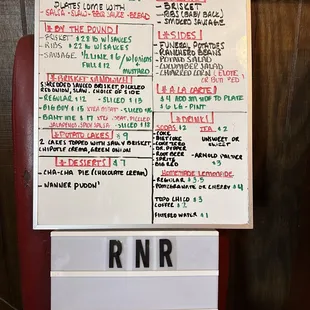 PLATES COME WITH
SALSA - SLAW - BBQ SAUCE - BREAD
* BY THE POUND
BRISKET $28 lb W/ SAUCES
RIBS $22 lb W/ SAUCES
SAUSAGE 1/2 LINK $6
FULL $12
W/ ONIONS
+
MUSTARD
* BRISKET SANDWICH
SHREDDED SAUCED BRISKET, PICKLED
RED ONION, SLAW, CHOICE OF SIDE
- REGULAR $12 - SLICED $13
- BIG BOY $15 XTRA MEAT - SLICED $16
- BANH MIE $17 XTRA MEAT, PICKLED
JALAPENO, SPCY SALSA - SLICED $18
* POTATO CAKES $9
2 CAKES TOPPED WITH SAUCY BRISKET,
CHIPOTLE CREMA, GREEN ONION
* DESSERTS $7
- CHA-CHA PIE (CHOCOLATE CREAM)
- NANNER PUDDIN'
- BRISKET
- RIBS (BABY BACK)
- SMOKED SAUSAGE
* SIDES
- FUNERAL POTATOES
- RANCHERO BEANS
- POTATO SALAD
- CUCUMBER SALAD
- CHARRED CORN (ELOTE
* A LA CARTE
$4 ADD 'EM UP TO PLATE
$6 - PINT
* DRINK
SODAS $2
TEA $2
- COKE
- DIET COKE
- COKE ZERO
- DR. PEPPER
- ROOT BEER
- SPRITE
- BIG RED
UNSWEET OR
SWEET
- ARNOLD PALMER
$3
HOMEMADE LEMONADE
- REGULAR $3.5
- POMEGRANATE OR CHERRY $4
TOPO CHICO $3
COFFEE $2
FILTERED WATER $1
RNR